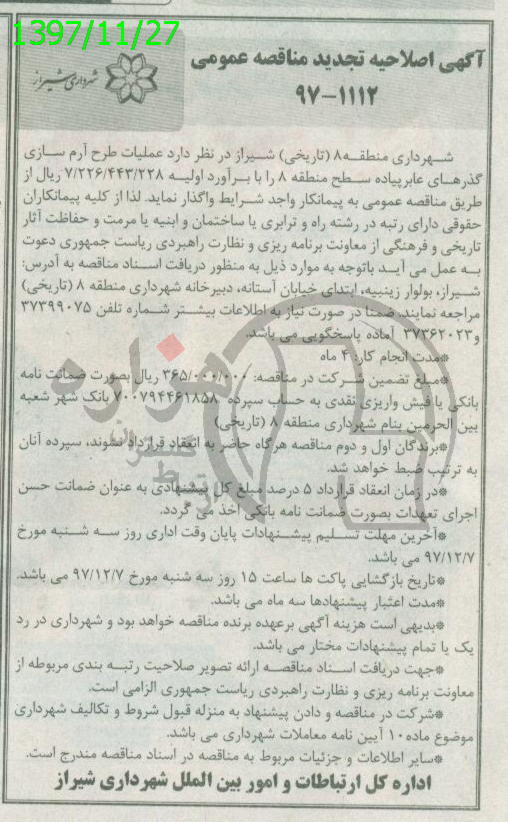 1397/11/27
آگهی اصلاحیه تجدید مناقصه عمومی
۹۷-۱۱۱۲
شهرداری شیراز
شهرداری منطقه۸ (تاریخی) شیراز در نظر دارد عملیات طرح آرم سازی
گذرهای عابرپیاده سطح منطقه ۸ را با برآورد اولیه ۷/۲۲۶/۴۴۳/۲۲۸ ریال از
طریق مناقصه عمومی به پیمانکار واجد شرایط واگذار نماید. لذا از کلیه پیمانکاران
حقوقی دارای رتبه در رشته راه و ترابری یا ساختمان و ابنیه یا مرمت و حفاظت آثار
تاریخی و فرهنگی از معاونت برنامه ریزی و نظارت راهبردی ریاست جمهوری دعوت
به عمل می آید باتوجه به موارد ذیل به منظور دریافت اسناد مناقصه به آدرس:
شیراز، بولوار زینبیه، ابتدای خیابان آستانه، دبیرخانه شهرداری منطقه ۸ (تاریخی)
مراجعه نمایند. ضمنا در صورت نیاز به اطلاعات بیشتر شماره تلفن ۳۷۳۹۹۰۷۵
و۳۷۳۶۲۰۲۳ آماده پاسخگویی می باشد.
*مدت انجام کار: ۴ ماه
*مبلغ تضمین شرکت در مناقصه: ۳۶۵/۰۰۰/۰۰۰ ریال بصورت ضمانت نامه
بانکی یا فیش واریزی نقدی به حساب سپرده ۷۰۰۷۹۴۴۶۱۸۵۸ بانک شهر شعبه
بین الحرمین بنام شهرداری منطقه ۸ (تاریخی)
*برندگان اول و دوم مناقصه هرگاه حاضر به انعقاد قرارداد نشوند، سپرده آنان
به ترتیب ضبط خواهد شد.
*در زمان انعقاد قرارداد ۵ درصد مبلغ کل پیشنهادی به عنوان ضمانت حسن
اجرای تعهدات بصورت ضمانت نامه بانکی اخذ می گردد.
*آخرین مهلت تسلیم پیشنهادات پایان وقت اداری روز سه شنبه مورخ
۹۷/۱۲/۷ می باشد.
*تاریخ بازگشایی پاکت ها ساعت ۱۵ روز سه شنبه مورخ ۹۷/۱۲/۷ می باشد.
*مدت اعتبار پیشنهادها سه ماه می باشد.
*بدیهی است هزینه آگهی برعهده برنده مناقصه خواهد بود و شهرداری در رد
یک یا تمام پیشنهادات مختار می باشد.
*جهت دریافت اسناد مناقصه ارائه تصویر صلاحیت رتبه بندی مربوطه از
معاونت برنامه ریزی و نظارت راهبردی ریاست جمهوری الزامی است.
*شرکت در مناقصه و دادن پیشنهاد به منزله قبول شروط و تکالیف شهرداری
موضوع ماده۱۰ آیین نامه معاملات شهرداری می باشد.
*سایر اطلاعات و جزئیات مربوط به مناقصه در اسناد مناقصه مندرج است.
اداره کل ارتباطات و امور بین الملل شهرداری شیراز
هزاره